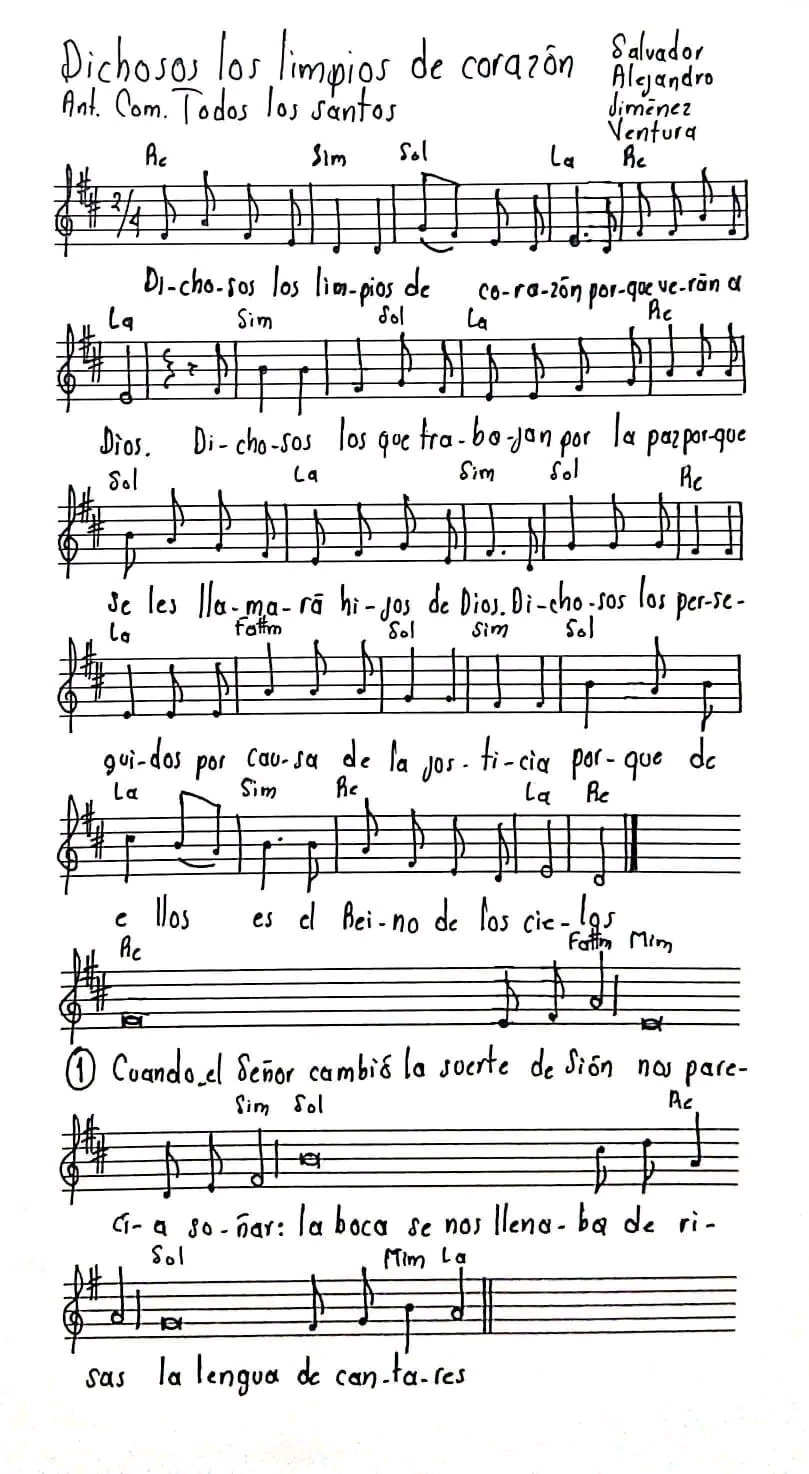 Dichosos los limpios de corazón
Salvador
Alejandro
Jiménez
Ventura
Ant. Com. Todos los santos
Re Sim Sol La Re
2/4
Di-cho-sos los lim-pios de co-ra-zón por-que ve-rán a
La Sim Sol La Re
Dios. Di-cho-sos los que tra-ba-jan por la paz por-que
Sol La Sim Sol Re
se les lla-ma-rá hi-jos de Dios. Di-cho-sos los per-se-
La Fa#m Sol Sim Sol
gui-dos por cau-sa de la jus-ti-cia por-que de
La Sim Re La Re
e llos es el Rei-no de los cie-los
Re Fa#m Mim
① Cuando el Señor cambió la suerte de Sión nos pare-
Sim Sol Re
cí-a so-ñar: la boca se nos llena-ba de ri-
Sol Mim La
sas la lengua de can-ta-res